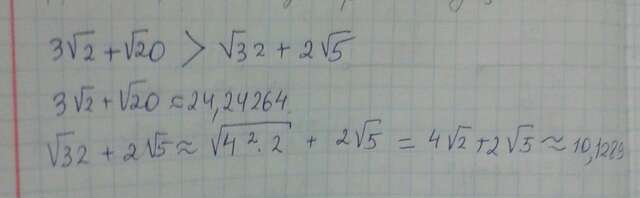 3√2 + √20 > √32 + 2√5
3√2 + √20 ≈ 24,24264
√32 + 2√5 ≈ √4²·2 + 2√5 = 4√2 + 2√5 ≈ 10,1289